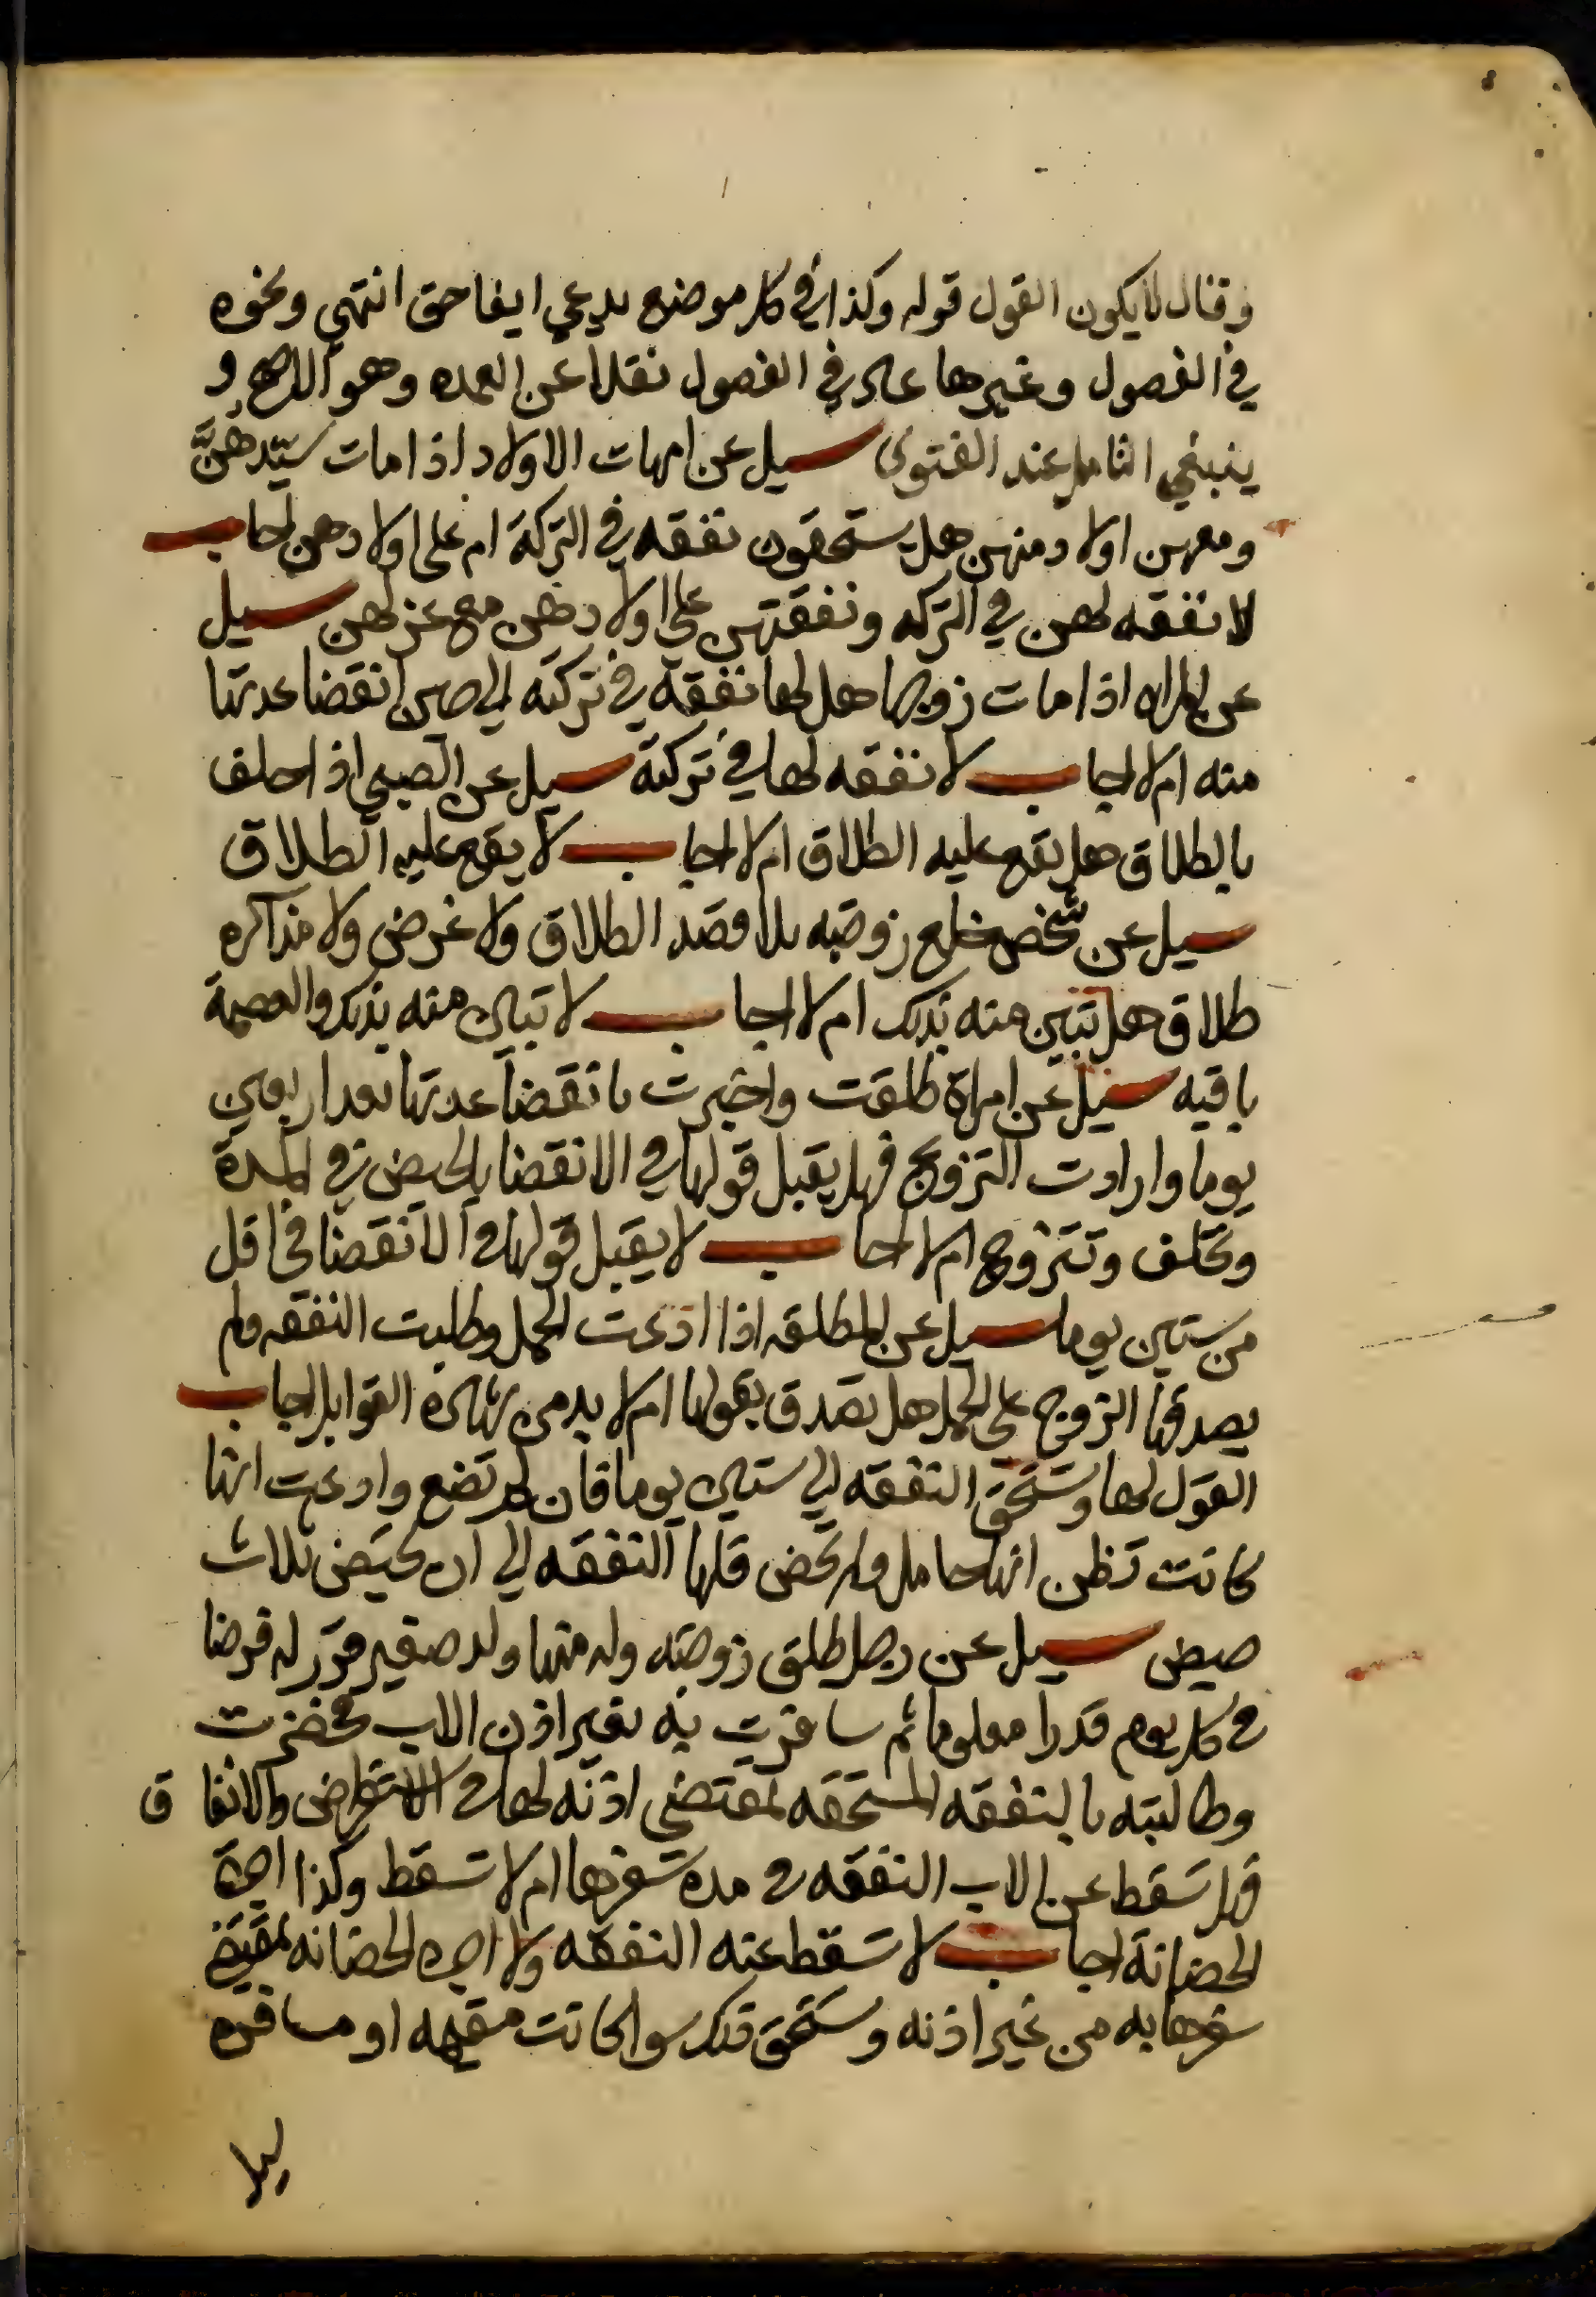 وقال لا يكون القول قوله وكذا في كل موضع يدعي ايفا حق انتهي ونحوه
في الفصول وغيرها علي في الفصول نقلا عن العمده وهو الاصح و
ينبغي التامل عند الفتوي سيل عن امهات الاولاد اذا مات سيّدهنّ
ومعهن اولاد منهن هل يستحقون نفقه في التركة ام علي اولادهن اجاب
لا نفقه لهن في التركه ونفقتهن علي اولادهن مع عزلهن سيل
عن المراه اذا مات زوجها هل لها نفقه في تركته الي حين انقضا عدتها
منه ام لا اجاب لا نفقه لها في تركة سيل عن الصبي اذا حلف
بالطلاق هل يقع عليه الطلاق ام لا اجاب لا يقع عليه الطلاق
سيل عن شخص خلع زوجته بلا قصد الطلاق ولا غرض ولا مذاكره
طلاق هل تبين منه بذلك ام لا اجاب لا تبين منه بذلك والعصمة
باقيه سيل عن امراة طلقت واخبرت بانقضا عدتها بعد اربعين
يوما وارادت التزوج فهل يقبل قولها في الانقضا بالحيض في المدة
وتحلف وتتزوج ام لا اجاب لا يقبل قولها في الانقضا في اقل
من ستين يوما سيل عن المطلقه اذا ادعت الحمل وطلبت النفقه ولم
يصدقها الزوج علي الحمل هل تصدق بقولها ام لا بد من شهادة القوابل اجاب
القول لها وتستحق النفقه الي ستين يوما فان لم تضع وادعت انها
كانت تظن انها حامل ولم تحض فلها النفقه الي ان تحيض ثلاث
حيض سيل عن رجل طلق زوجته وله منها ولد صغير قرر له فرضا
في كل يوم قدرا معلوما ثم سافرت به بغير اذن الاب فحضرت
وطالبته بالنفقه المستحقه بمقتضي اذنه لها في الاستقراض والانفا ق
فهل تسقط عن الاب النفقه في مده سفرها ام لا تسقط وكذا اجرة
الحضانة اجاب لا تسقط عنه النفقه ولا اجره الحضانه بمقتضي
سفرها به من غير اذنه وتستحق ذلك سوا كانت مقيمه او مسافره